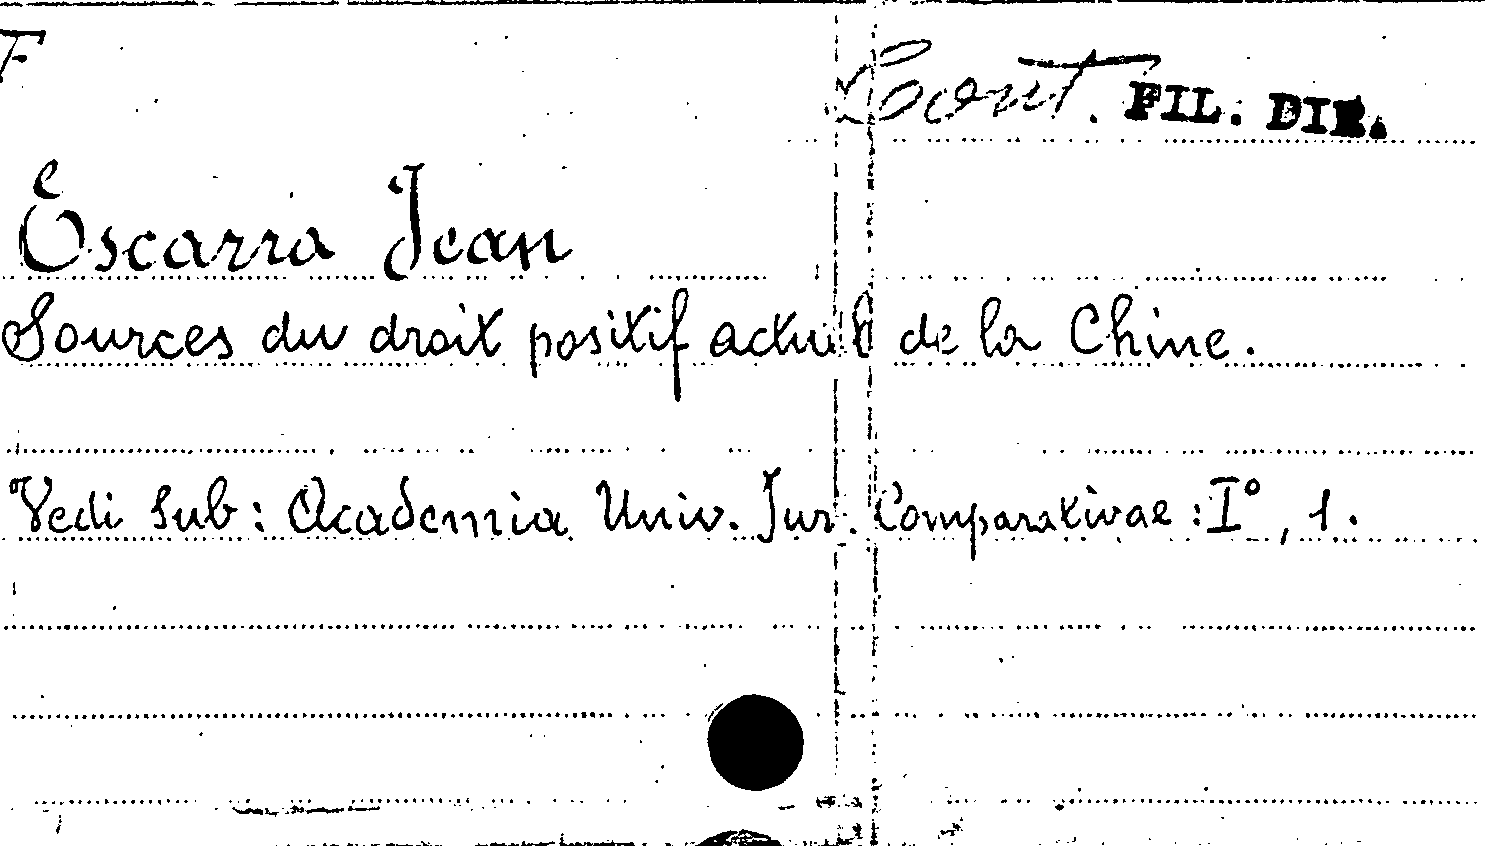 F
Cont. FIL. DIR.
Escarra Jean
Sources du droit positif actuel de la Chine.
Vedi sub: Academia Univ. Jur. Comparativae: I°, 1.